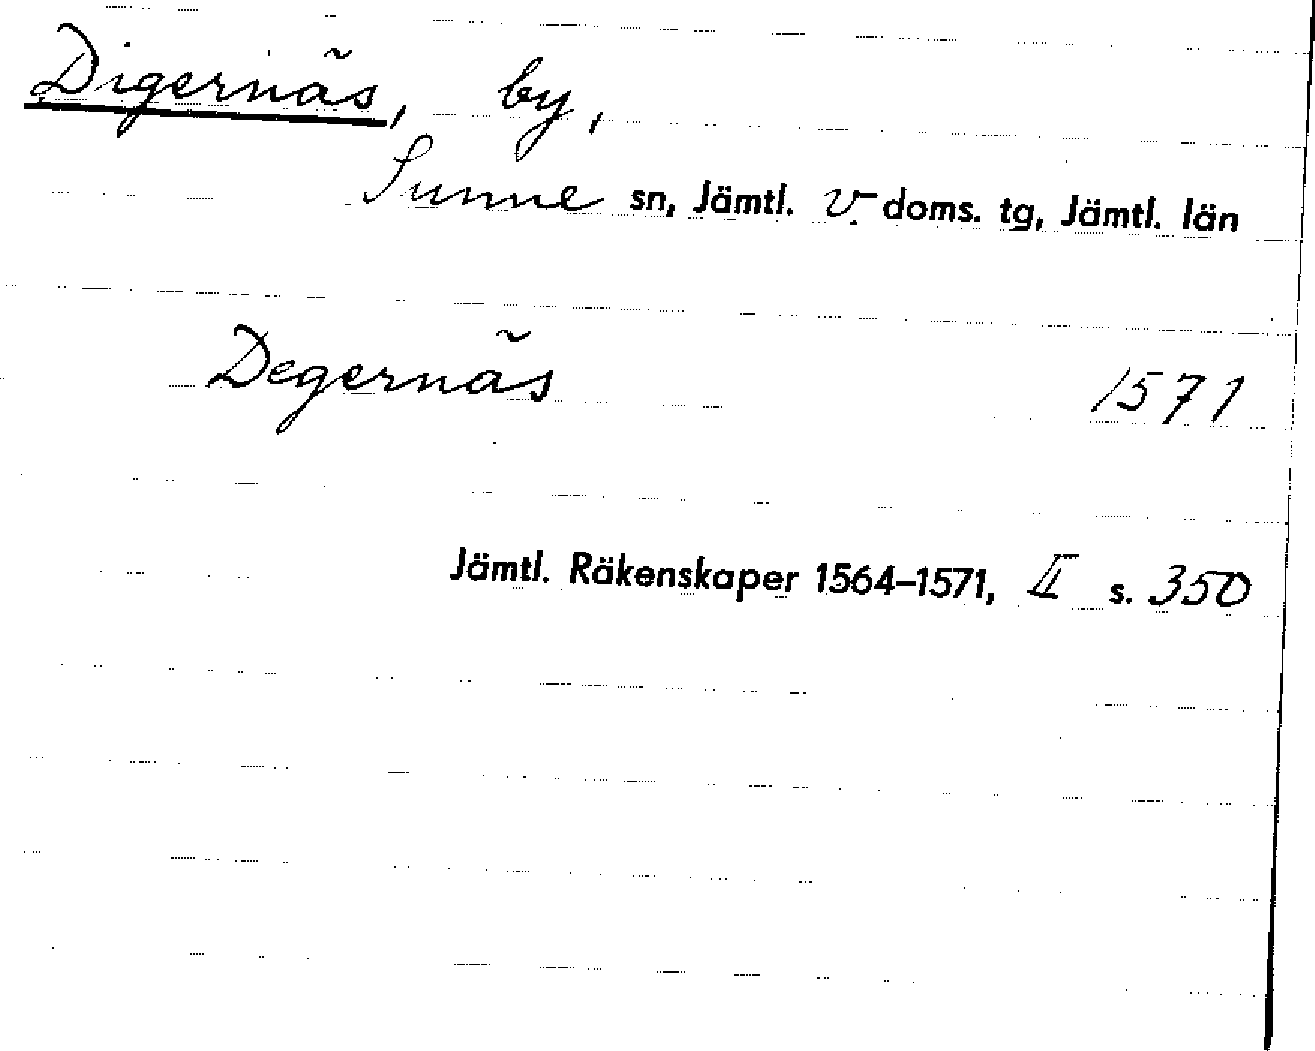 Digernäs, by,
Sunne sn, Jämtl. v. doms. tg, Jämtl. län
Degernäs 1571
Jämtl. Räkenskaper 1564–1571, II s. 350